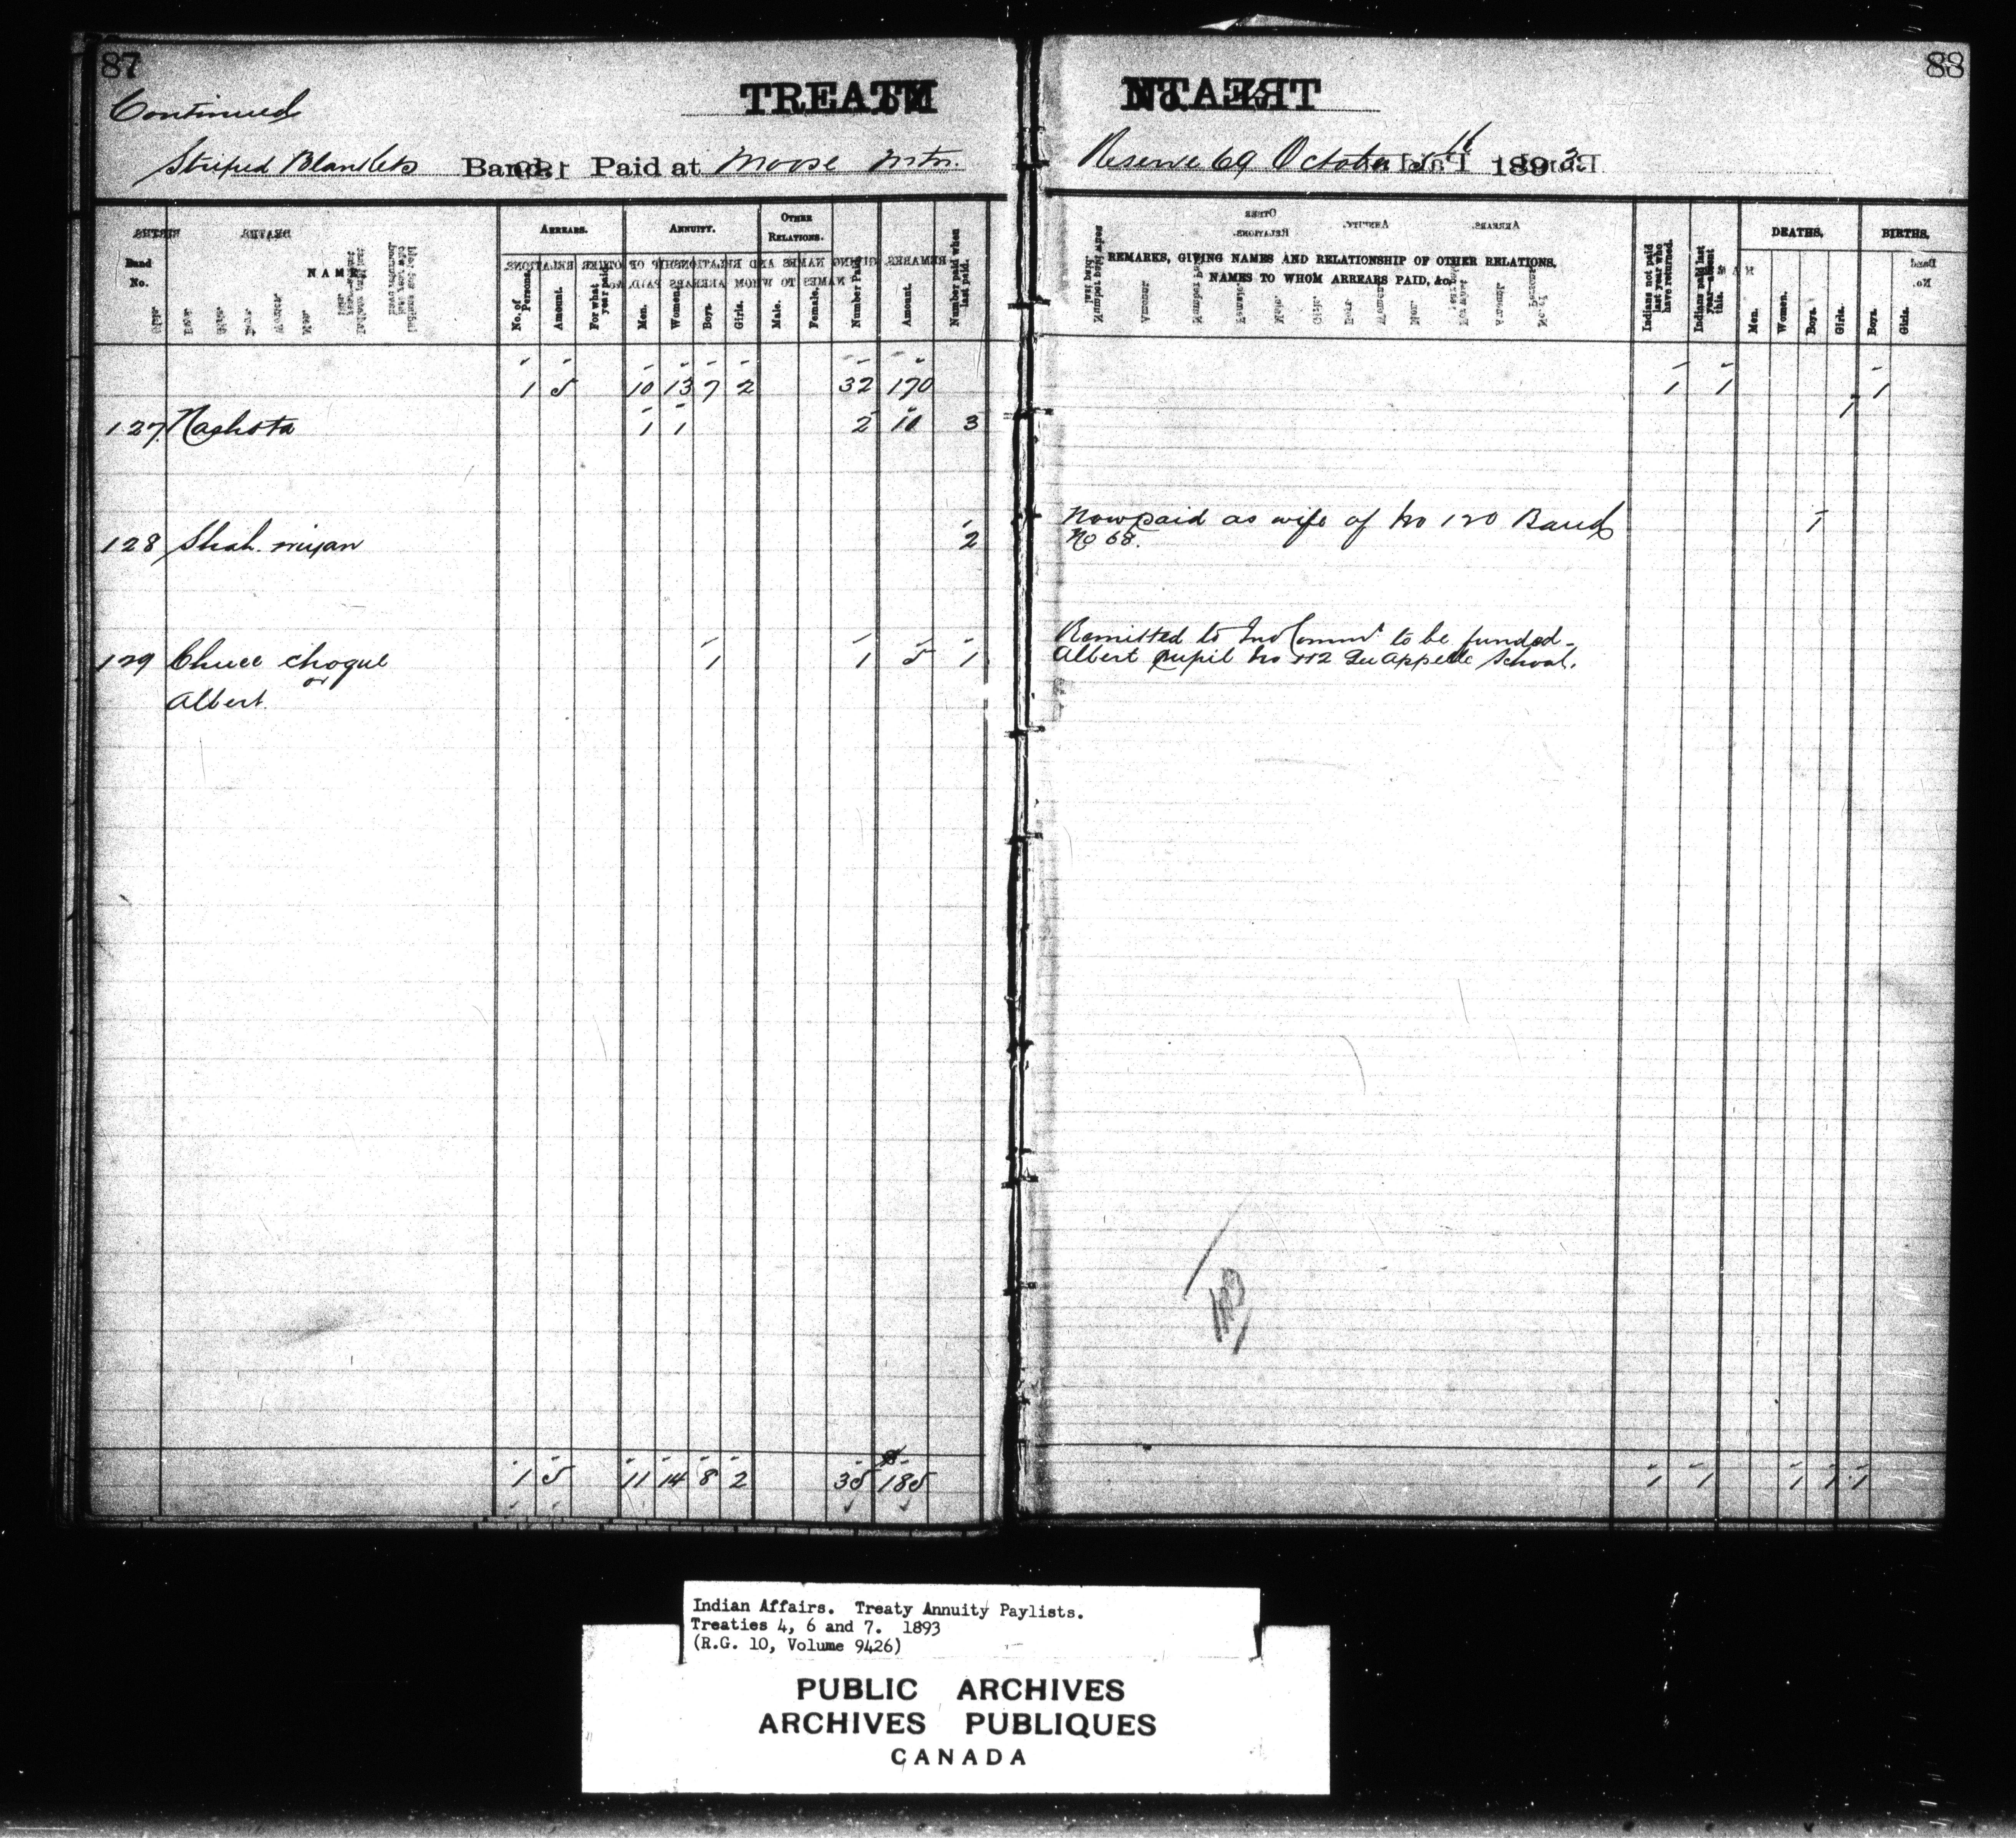 87
Continued
TREATY
Striped Blankets Band. Paid at Moose Mtn.
Band No.
NAME
ARREARS.
No. of Persons.
Amount.
For what year paid.
ANNUITY.
Men.
Women.
Boys.
Girls.
OTHER RELATIONS.
Male.
Female.
Number Paid.
Amount.
Number paid when last paid.
1 5 10 13 7 2 32 170
127 Nashota 1 1 2 10 3
128 Shah. miyan 2
129 Chuee choque 1 1 5 1
or
Albert.
1 5 11 14 8 2 35 185
88
No. 4
Reserve 69 October 5th 1893
REMARKS, GIVING NAMES AND RELATIONSHIP OF OTHER RELATIONS,
NAMES TO WHOM ARREARS PAID, &c.
Indians not paid last year who have returned.
Indians paid last year absent this.
DEATHS,
Men.
Women.
Boys.
Girls.
BIRTHS,
Boys.
Girls.
1 1 1
1
Now paid as wife of No 120 Band 1
No 68.
Remitted to Ind Commr to be funded -
Albert pupil No 112 Qu'Appelle School.
1 1 1 1 1
Indian Affairs. Treaty Annuity Paylists.
Treaties 4, 6 and 7. 1893
(R.G. 10, Volume 9426)
PUBLIC ARCHIVES
ARCHIVES PUBLIQUES
CANADA